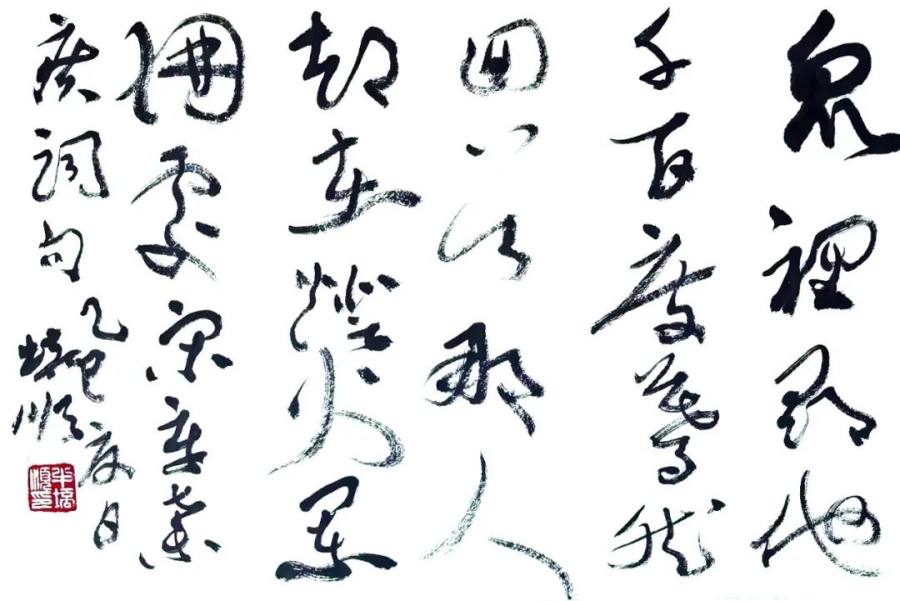 眾裡尋他
千百度驀然
回首那人
却在燈火闌
珊處宋辛棄
疾詞句
乙巳夏日
順